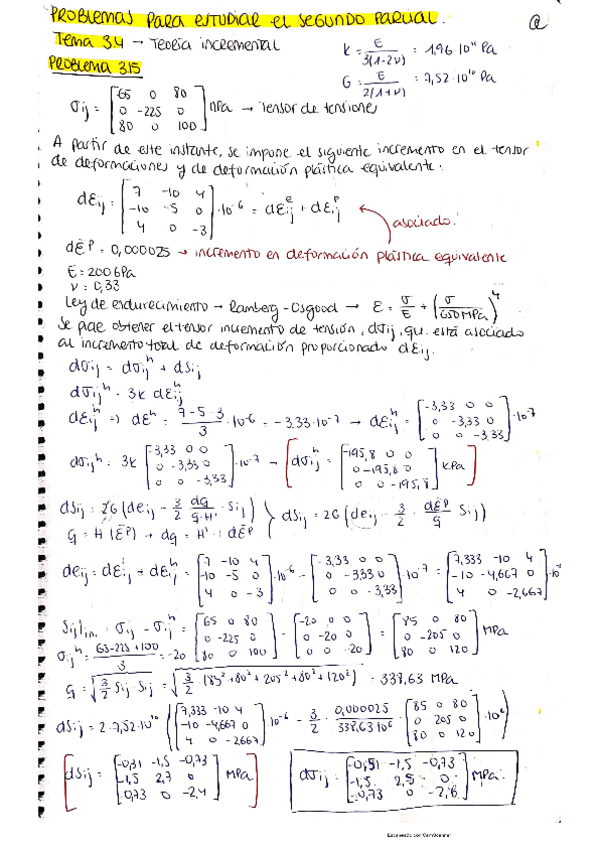 PROBLEMAS PARA ESTUDIAR EL SEGUNDO PARCIAL.
Tema 3.4 → Teoría incremental
K = E / 3(1-2ν) = 1,96 10¹¹ Pa
PROBLEMA 315
G = E / 2(1+ν) = 7,52·10¹⁰ Pa
σij = [65 0 80; 0 -225 0; 80 0 100] MPa → Tensor de tensiones
A partir de este instante, se impone el siguiente incremento en el tensor
de deformaciones y de deformación plástica equivalente:
dεij = [7 -10 4; -10 -5 0; 4 0 -3]·10⁻⁶ = dεᵉij + dεᵖij
asociado.
dε̄ᵖ = 0,000025 → incremento en deformación plástica equivalente
E = 200 GPa
ν = 0,33
Ley de endurecimiento → Ramberg-Osgood → ε = σ/E + (σ/650 MPa)⁴
Se pide obtener el tensor incremento de tensión, dσij, que está asociado
al incremento total de deformación proporcionado dεij.
dσij = dσijʰ + dSij
dσijʰ = 3K dεijʰ
dεijʰ => dεʰ = (7-5-3)/3 ·10⁻⁶ = -3,33·10⁻⁷ → dεijʰ = [-3,33 0 0; 0 -3,33 0; 0 0 -3,33]·10⁻⁷
dσijʰ = 3K [-3,33 0 0; 0 -3,33 0; 0 0 -3,33]·10⁻⁷ → [dσijʰ = [-195,8 0 0; 0 -195,8 0; 0 0 -195,8] kPa]
dSij = 2G (deij - 3/2 dσ̄/(σ̄·H') · Sij)
dSij = 2G (deij - 3/2 · dε̄ᵖ/σ̄ Sij)
σ̄ = H(ε̄ᵖ) → dσ̄ = H' · dε̄ᵖ
[7 -10 4; -10 -5 0; 4 0 -3]·10⁻⁶ - [-3,33 0 0; 0 -3,33 0; 0 0 -3,33]·10⁻⁷ = [7,333 -10 4; -10 -4,667 0; 4 0 -2,667]
σij - σijʰ = [65 0 80; 0 -225 0; 80 0 100] - [-20 0 0; 0 -20 0; 0 0 -20] = [85 0 80; 0 -205 0; 80 0 120] MPa
σijʰ = (65-225+100)/3 = -20
σ̄ = √(3/2 Sij Sij) = √(3/2 · (85² + 80² + 205² + 80² + 120²)) = 338,63 MPa
dSij = 2·7,52·10¹⁰ ([7,333 -10 4; -10 -4,667 0; 4 0 -2,667]·10⁻⁶ - 3/2 · 0,000025/338,63·10⁶ · [85 0 80; 0 205 0; 80 0 120]·10⁶)
[dSij = [-0,31 -1,5 -0,73; -1,5 2,7 0; -0,73 0 -2,4] MPa]
dσij = [-0,51 -1,5 -0,73; -1,5 2,5 0; -0,73 0 -2,6] MPa.
Escaneado con CamScanner